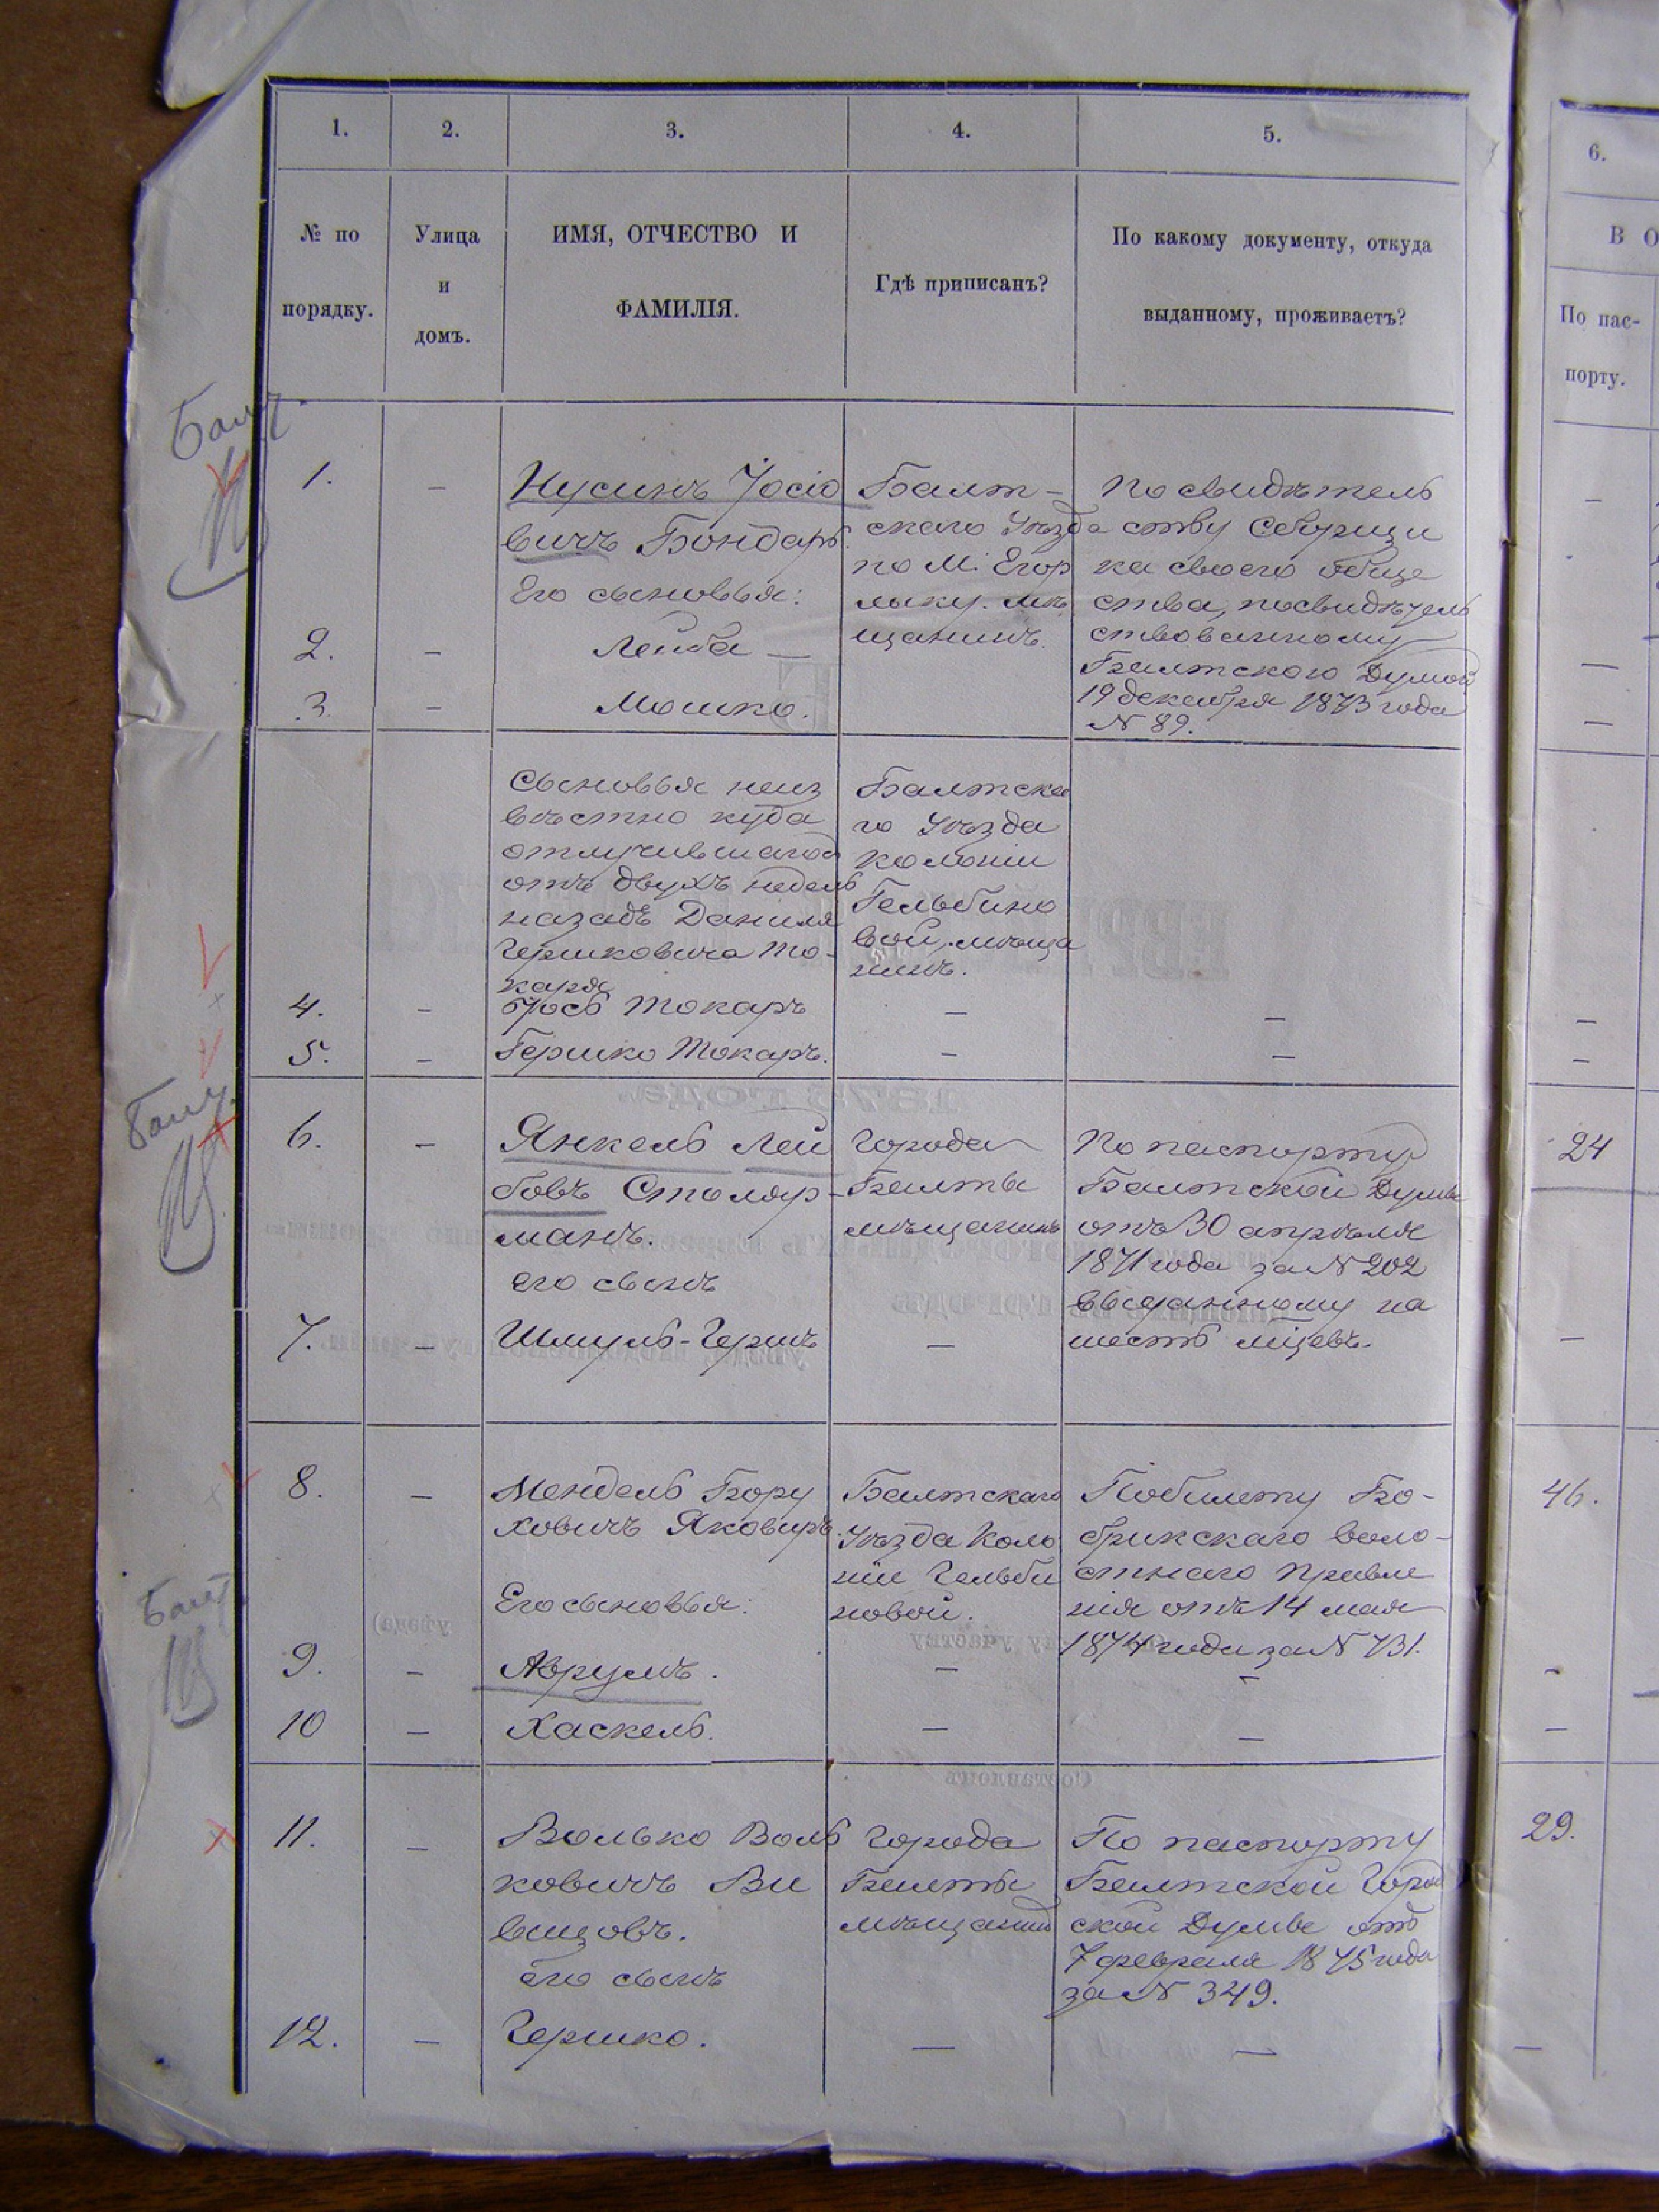 1.
2.
3.
4.
5.
6.
№ по
порядку.
Улица
и
домъ.
ИМЯ, ОТЧЕСТВО И
ФАМИЛІЯ.
Гдѣ приписанъ?
По какому документу, откуда
выданному, проживаетъ?
В О
По пас-
порту.
Балт.
1.
—
Нусинъ Іосіо
вичъ Бондарь.
Его сыновья:
Балт-
скаго Уѣзда
по М. Егор
лыку. мѣ
щанинъ.
По свидѣтель
ству Сборщи
ка своего обще
ства, посвидѣтель
ствованному
Балтскою Думой
19 декабря 1873 года
№ 89.
—
2.
—
Лейба —
—
3.
—
Мошко.
—
Сыновья неиз
вѣстно куда
отлучившагося
отъ двухъ недель
назадъ Даниля
Гершковича То-
каря
Балтска
го Уѣзда
колоніи
Гельбино
вой, мѣща
нинъ.
4.
—
Іось Токаръ
—
—
—
5.
—
Гершко Токаръ.
—
—
—
Балт.
6.
—
Янкель Лей
бовъ Столяр-
манъ.
его сынъ
Города
Балты
мѣщанинъ
По паспорту
Балтской Думы
отъ 30 апрѣля
1871 года за № 202
выданному на
шесть мцевъ.
24
7.
—
Шмуль-Гершъ
—
—
8.
—
Мендель Бору
ховичъ Яковиръ
Его сыновья:
Балтскаго
Уѣзда Коло
ніи Гельби
новой.
По билету Бо-
брикскаго воло-
стнаго Правле
нія отъ 14 мая
1874 года за № 731.
46.
Балт.
9.
—
Аврумъ.
—
—
—
10
—
Хаскель.
—
—
—
11.
—
Волько Воль
ковичъ Ви
вцовъ.
его сынъ
города
Балты
мѣщанинъ
По паспорту
Балтской Город
ской Думы отъ
7 февраля 1875 года
за № 349.
29.
12.
—
Гершко.
—
—
—